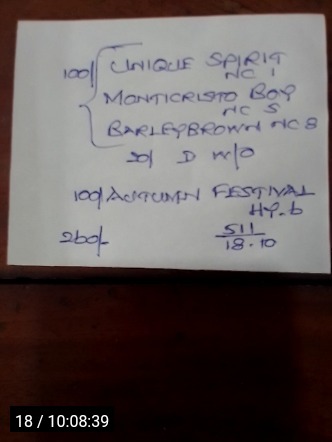 100/ UNIQUE SPIRIT
NC 1
MONTICRISTO BOY
NC 5
BARLEYBROWN NC 8
20/ D W/O
100/ AUTUMN FESTIVAL
HY. 6
260/-
511
18.10
18 / 10:08:39